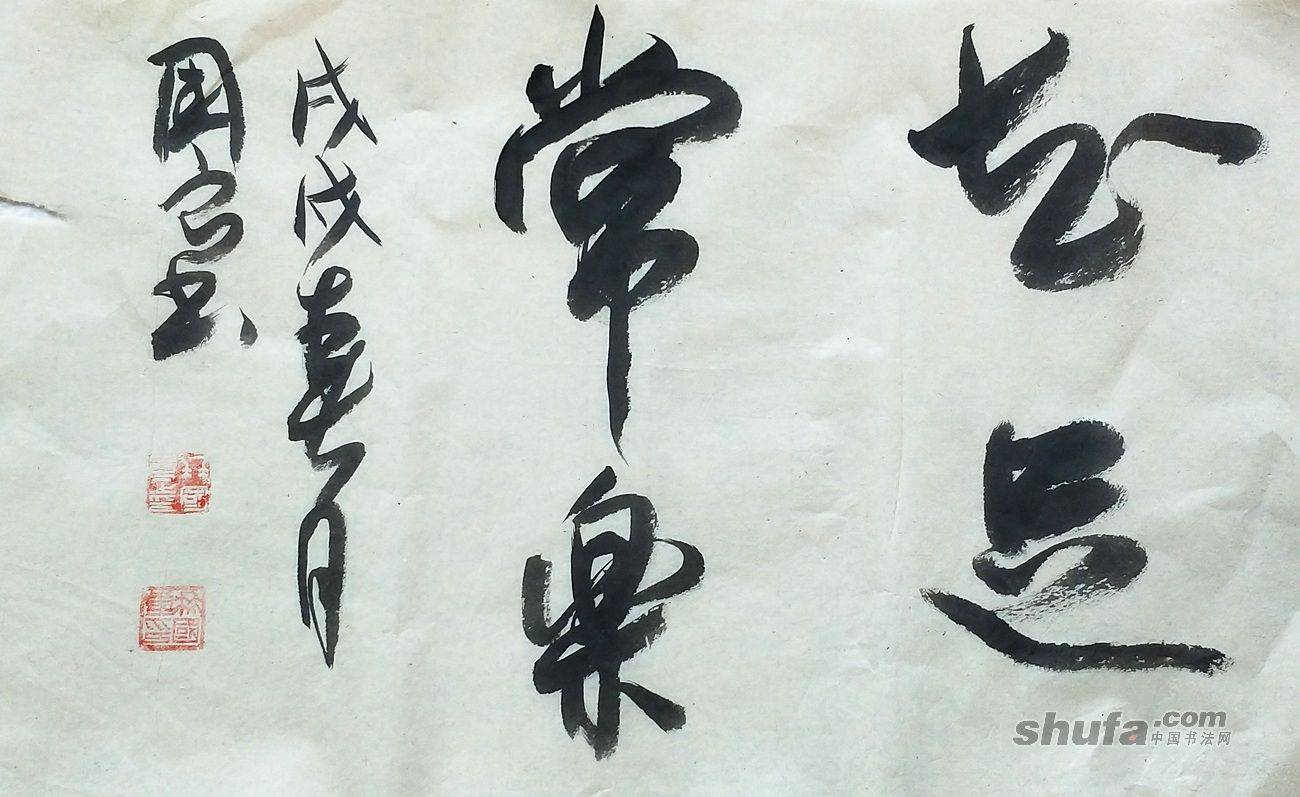 知足
常樂
戊戌春月
国 书
shufa.com
中国书法网